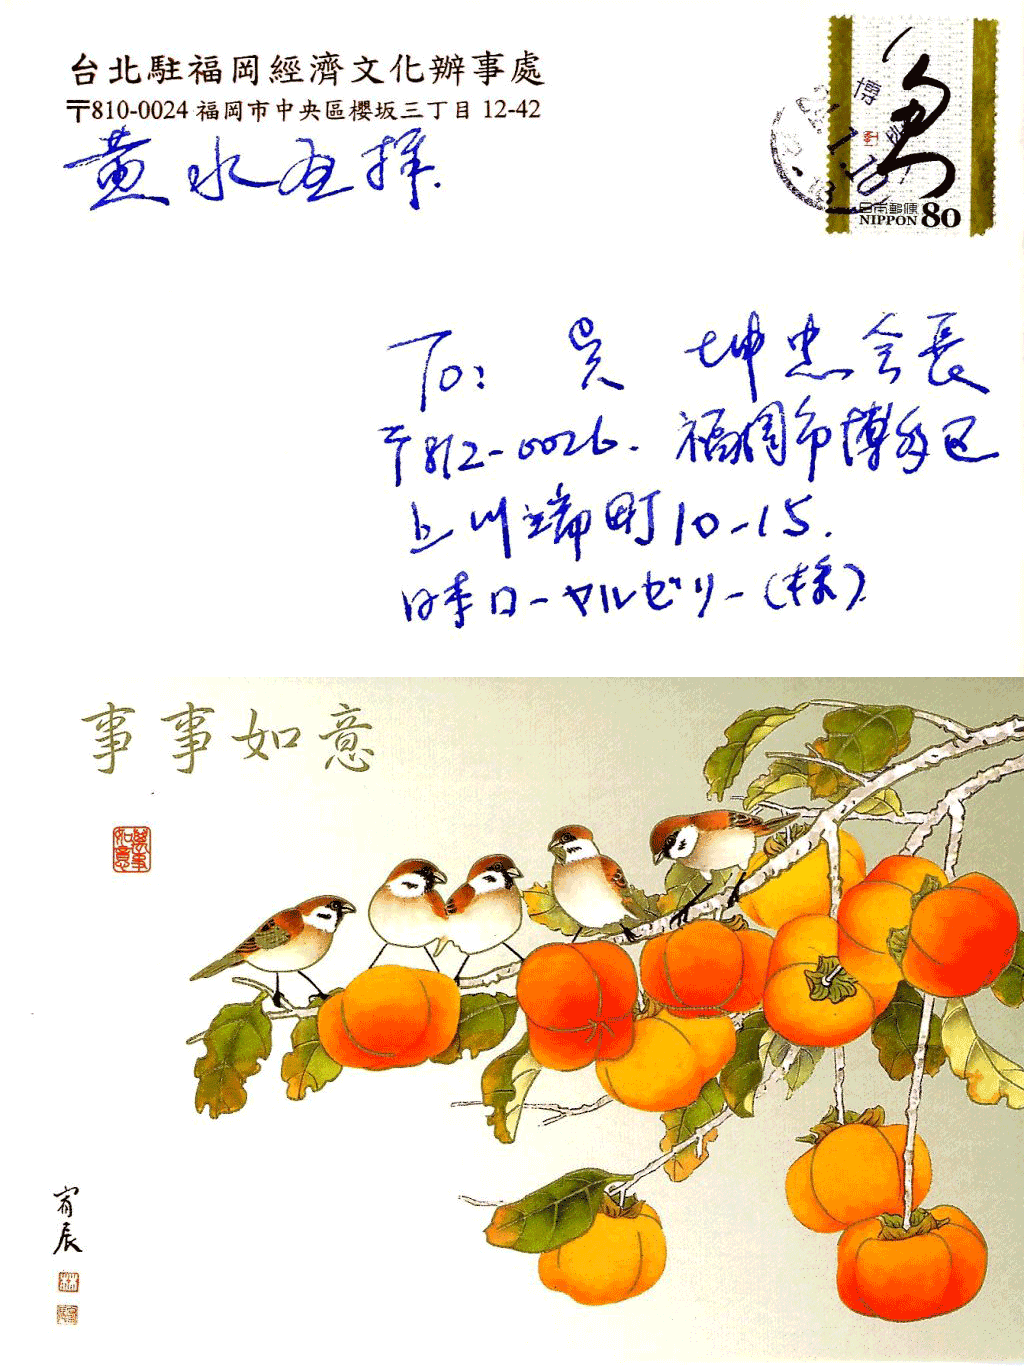 台北駐福岡經濟文化辦事處
〒810-0024 福岡市中央區櫻坂三丁目 12-42
黄水益拝.
博
日本郵便
NIPPON 80
To: 吳 坤忠会長
〒812-0026. 福岡市博多区
上川端町10-15.
日本ローヤルゼリー(様)
事事如意
萬事如意
宥辰